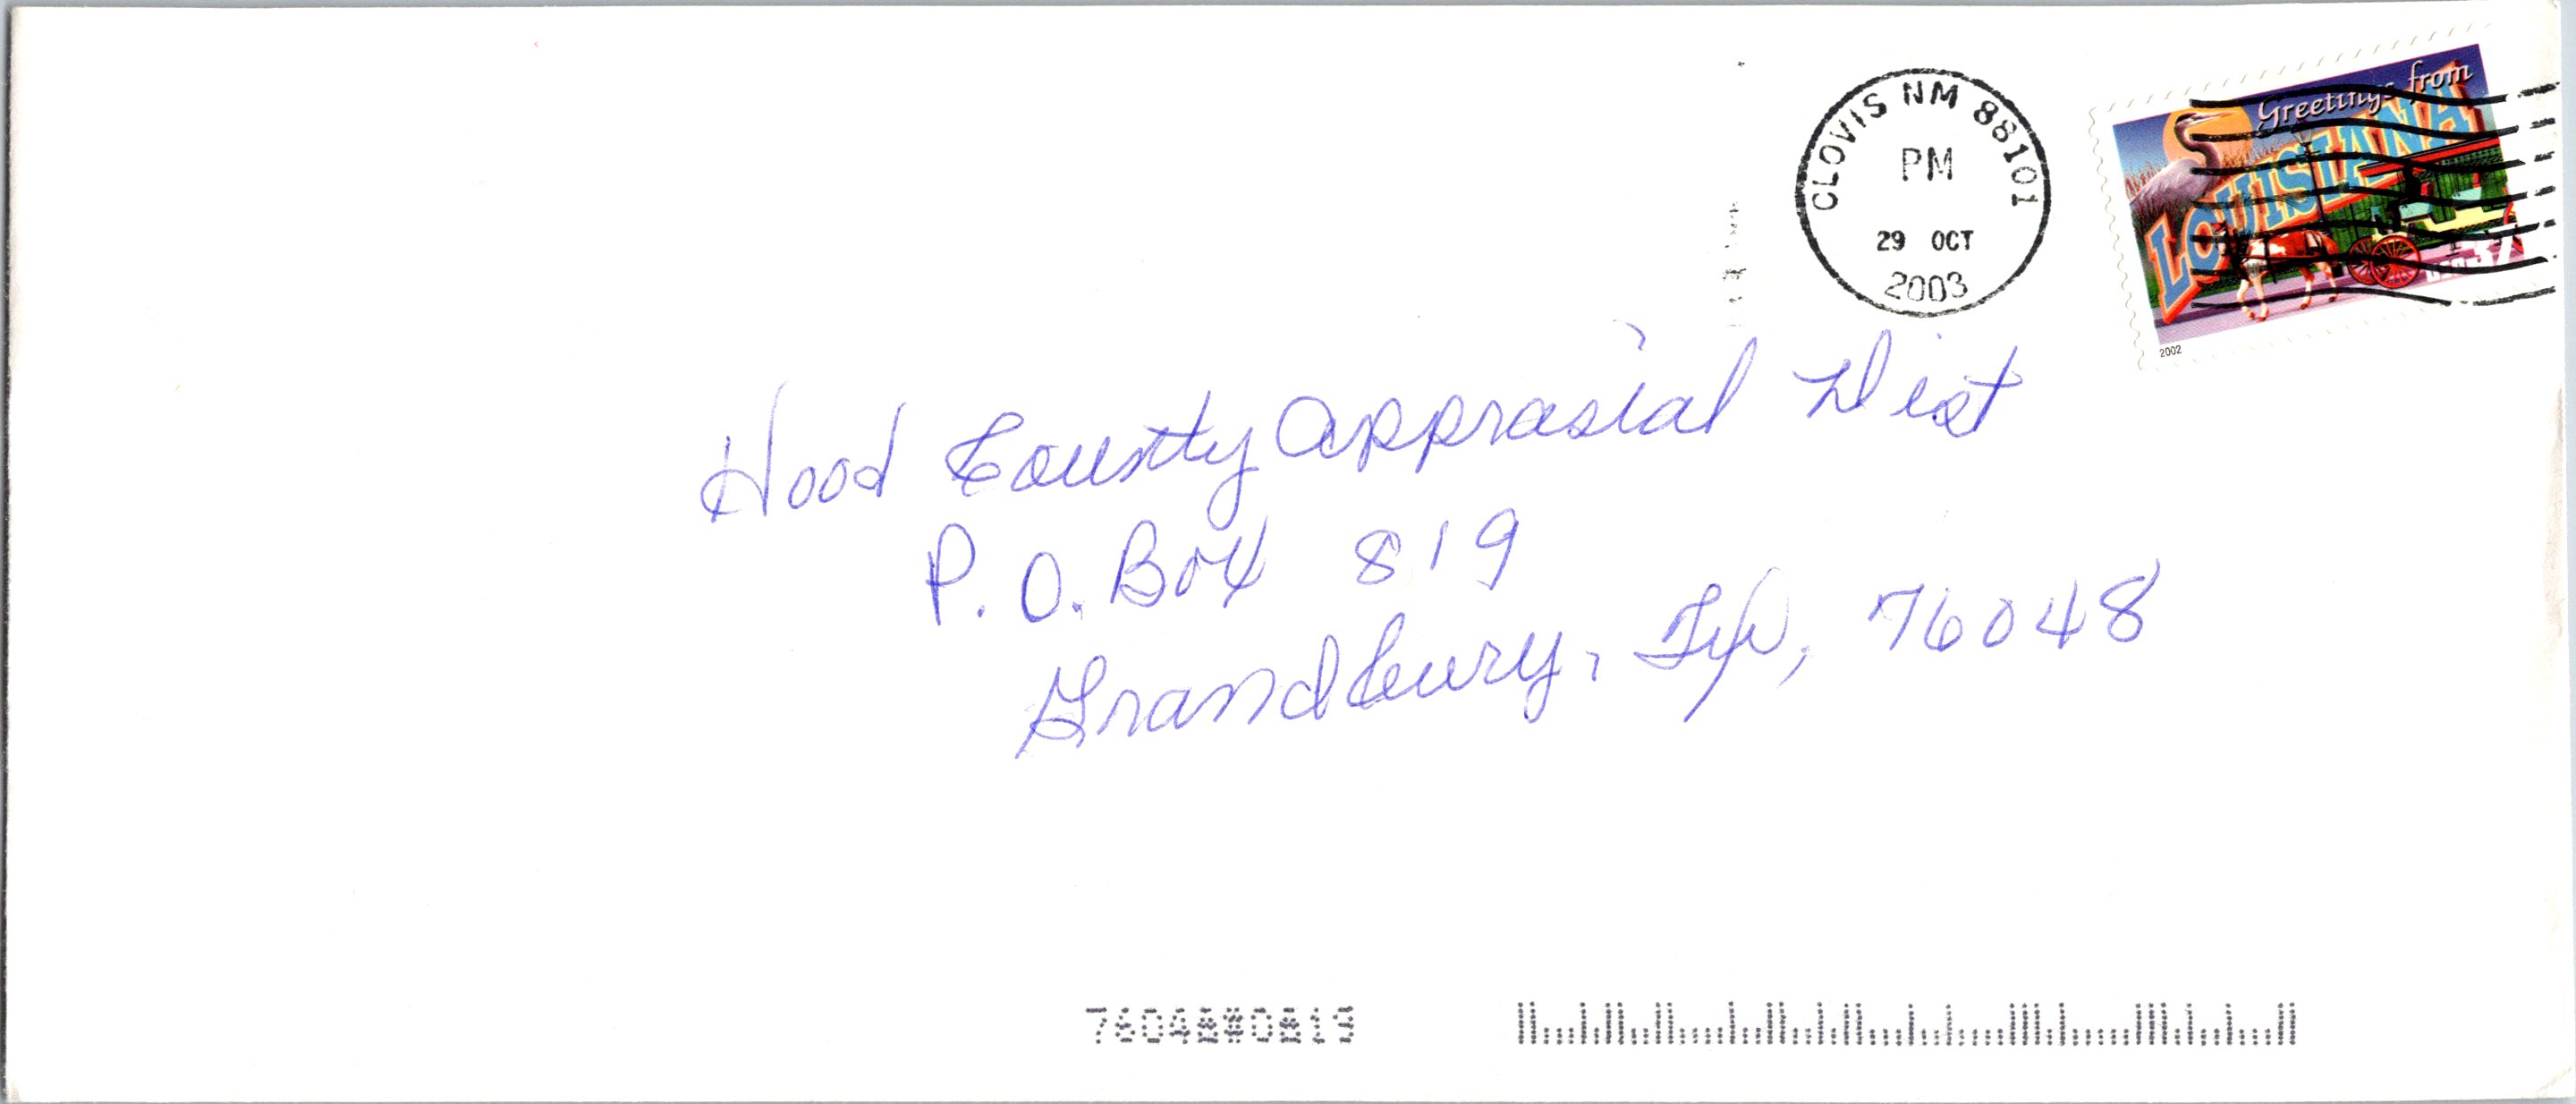 CLOVIS NM 88101
PM
29 OCT
2003
Greetings from
LOUISIANA
37
2002
Hood County Apprasial Dist
P.O. Box 819
Grandbury, Tx, 76048
76048*0819